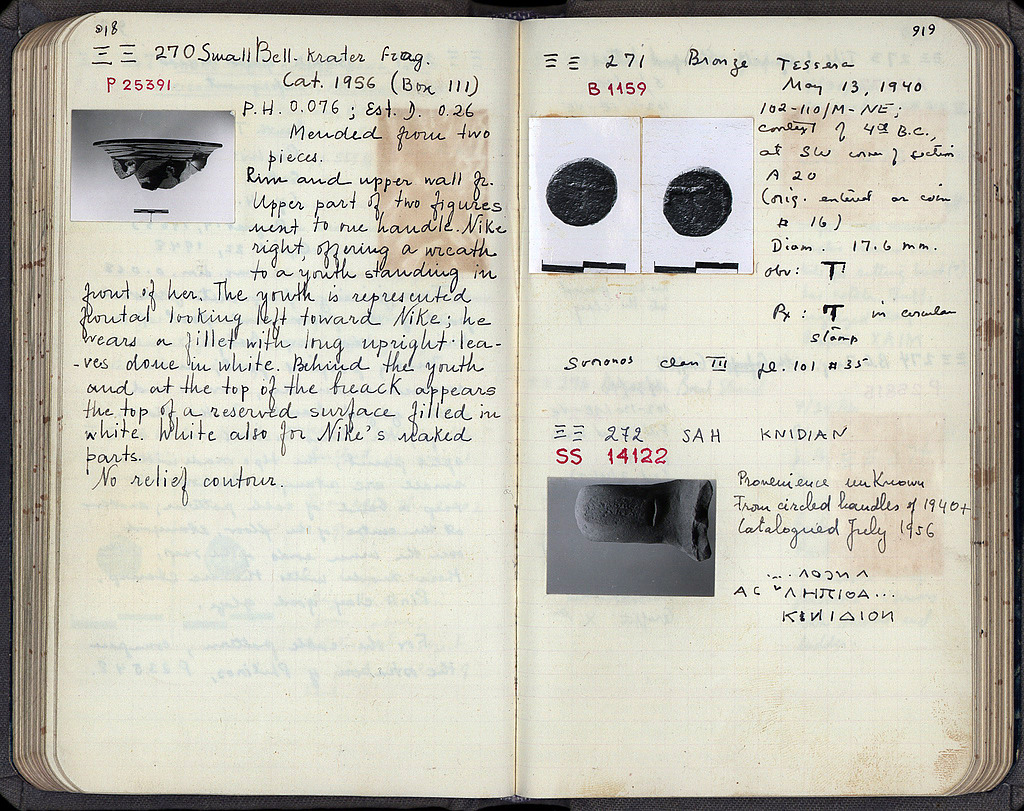 918
ΞΞ 270 Small Bell-Krater Frag.
P 25391
Cat. 1956 (Box III)
P.H. 0.076; Est. D. 0.26
Mended from two
pieces.
Rim and upper wall fr.
Upper part of two figures
next to one handle. Nike
right, offering a wreath
to a youth standing in
front of her. The youth is represented
frontal looking left toward Nike; he
wears a fillet with long upright lea-
-ves done in white. Behind the youth
and at the top of the break appears
the top of a reserved surface filled in
white. White also for Nike's naked
parts.
No relief contour.
919
ΞΞ 271 Bronze Tessera
B 1159
May 13, 1940
102-110/M-NE;
context of 4th B.C.,
at SW corner of section
A 20
(orig. entered as coin
# 16)
Diam. 17.6 mm.
obv: T
Rx: T in circular
stamp
Svoronos class III pl. 101 #35
ΞΞ 272 SAH KNIDIAN
SS 14122
Provenience unknown
From circled handles of 1940+
Catalogued July 1956
ΚΝΙΔΙΟΝ